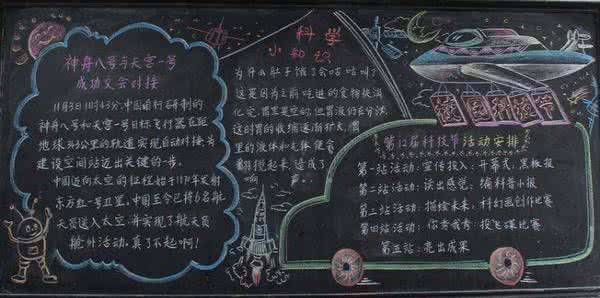 神舟八号与天宫一号
成功交会对接
11月3日1时43分,中国自行研制的
神舟八号和天宫一号目标飞行器在距
地球343公里的轨道实现自动对接,为
建设空间站迈出关键的一步。
中国迈向太空的征程始于1970年发射
东方红一号卫星,中国至今已将6名航
天员送入太空,并实现了航天员
舱外活动,真了不起啊!
科学
小知识
为什么肚子饿了会咕咕叫?
这是因为之前吃进的食物被消
化完,胃里是空的,但胃液仍在分泌
这时胃的收缩逐渐扩大,胃
里的液体和气体便会
被搅起来,造成了
第12届科技节活动安排
第一站活动:宣传投入:开幕式,黑板报
第二站活动:读出感觉:编科普小报
第三站活动:描绘未来:科幻画创作比赛
第四站活动:你秀我秀:投飞碟比赛
第五站:亮出成果